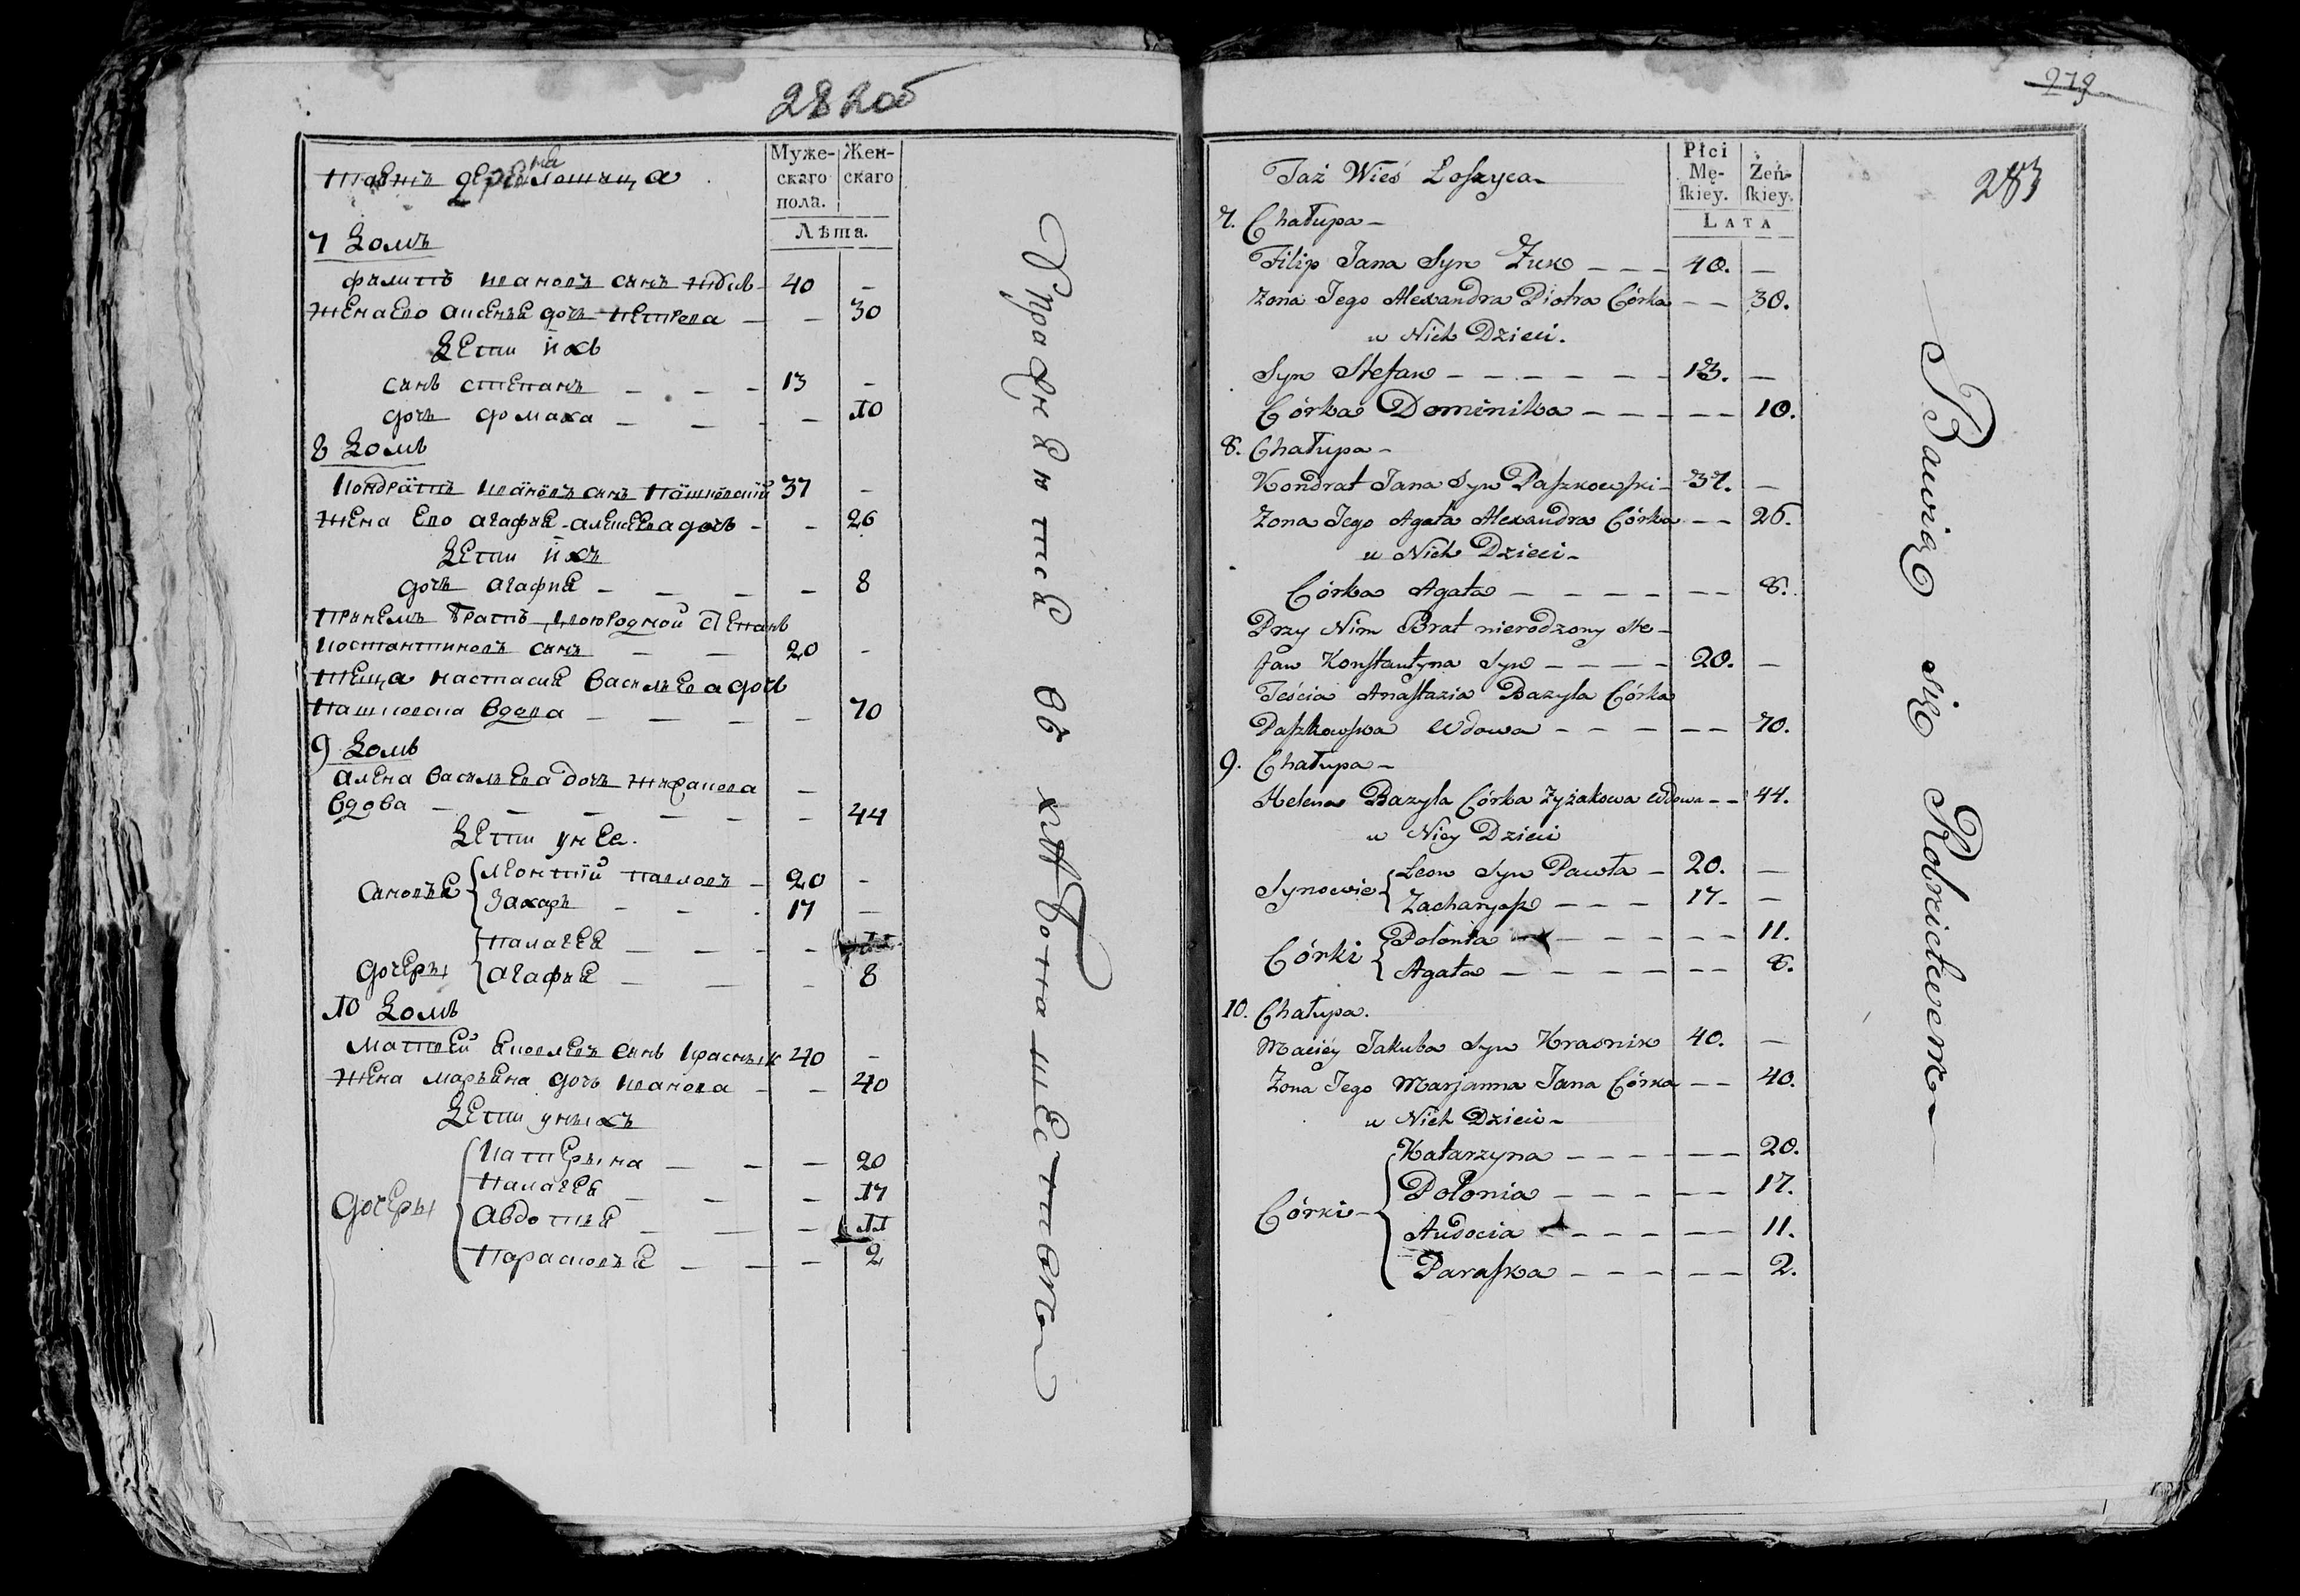 282об
Тажъ деревня лошица
Муже-скаго пола.
Жен-скаго
Лѣта.
7 Домъ
Филипъ Ивановъ сынъ Жукъ — 40 —
Жена его Аксенья дочь Петрова — — 30
Дети ихъ
сынъ степанъ — — — 13 —
дочь домаха — — — — 10
8 Домъ
Кондратъ Ивановъ сынъ Пашковский 37 —
Жена Его агафия алексеева дочь — — 26
Дети ихъ
дочь агафия — — — — 8
принемъ братъ двоюродной степанъ
костантиновъ сынъ — — 20 —
теща настасия васильева дочь
Пашковска вдова — — — — 70
9 Домъ
алена васильева дочь Жижакова —
вдова — — — — — — 44
Дети у нее.
сыновья
леонтий павловъ — 20 —
захаръ — — . 17 —
дочеры
палагея — — — — 11
агафия — — — 8
10 Домъ
матвей яковлевъ сынъ красникъ 40 —
Жена марьяна дочь иванова — — 40
Дети унихъ
дочеры
катерына — — — 20
палагея — — — 17
авдотья — — — 11
парасковья — — — 2
Упражняется въ хлебопашестве
279
283
Taż Wieś Łoszyca
Płci Mę-skiey.
Żeń-skiey.
LATA
7. Chałupa –
Filip Jana Syn Żuk – – – 40. —
Żona Jego Alexandra Piotra Córka – – 30.
u Nich Dzieci.
Syn Stefan – – – – – – 13. —
Córka Dominika – – – – – 10.
8. Chałupa –
Kondrat Jana Syn Paszkowski – 37. —
Żona Jego Agata Alexandra Córka – – 26.
u Nich Dzieci –
Córka Agata – – – – – – – 8.
Przy Nim Brat nierodzony Ste-
fan Konstantyna Syn – – – – 20. —
Teścia Anastazia Bazyla Córka
Paszkowska Wdowa – – – – – 70.
9. Chałupa –
Helena Bazyla Córka Zyżakowa Wdowa – – 44.
u Niey Dzieci
Synowie
Leon Syn Pawła – 20. —
Zacharyasz – – – 17. —
Córki
Połonia – – – – – – 11.
Agata – – – – – – – 8.
10. Chałupa.
Maciéy Jakuba Syn Krasnik 40. —
Żona Jego Marjanna Jana Córka – – 40.
u Nich Dzieci –
Córki –
Katarzyna – – – – – – 20.
Połonia – – – – – – 17.
Audocia – – – – – – 11.
Paraska – – – – – – 2.
Bawią się Rolnictwem